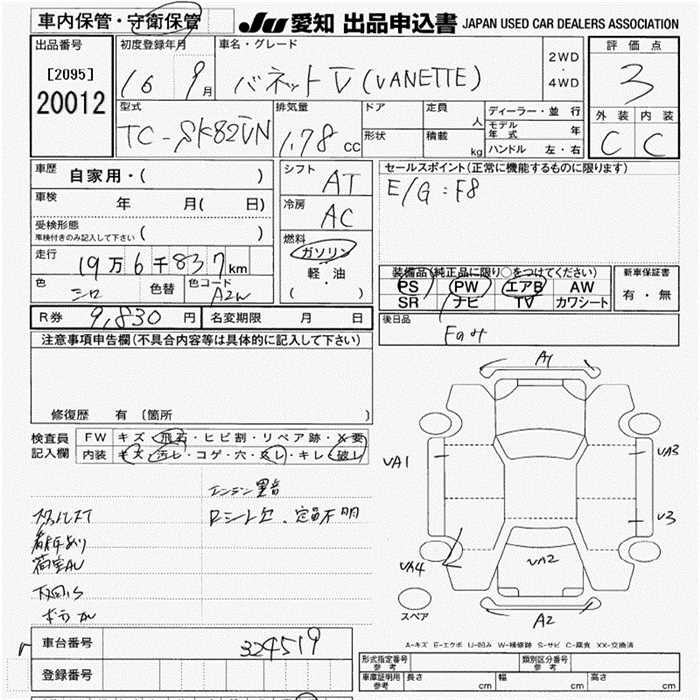 車内保管・守衛保管
JU 愛知 出品申込書 JAPAN USED CAR DEALERS ASSOCIATION
出品番号
[2095]
20012
初度登録年月
16 9月
車名・グレード
バネットV (VANETTE)
2WD
・
4WD
評価点
3
外装 内装
C C
型式
TC-SK82VN
排気量
1.78 cc
ドア
形状
定員 人
積載 kg
ディーラー・並行
モデル年式 年
ハンドル 左・右
車歴 自家用・( )
車検 年 月(日 )
受検形態
車検付きのみ記入して下さい ( )
走行
19万6千837km
色 シロ 色替 色コード A2W
シフト AT
冷房 AC
燃料
ガソリン
軽・油
( )
セールスポイント(正常に機能するものに限ります)
E/G:F8
装備品(純正品に限り○をつけてください)
PS PW エアB AW
SR ナビ TV カワシート
新車保証書
有・無
R券 9,830円 名変期限 月 日
後日品
注意事項申告欄(不具合内容等は具体的に記入して下さい)
修復歴 有 〔箇所 〕
検査員
記入欄
FW キズ・飛石・ヒビ割・リペア跡・X要
内装 キズ・汚レ・コゲ・穴・スレ・キレ・破レ
エンジン異音
ロシート欠、定員不明
A1
VA1
VA3
V3
VA4
VA2
A2
スペア
A-キズ E-エクボ U-凹み W-補修跡 S-サビ C-腐食 XX-交換済
車台番号 324519
登録番号
形式指定番号
参考
類別区分番号
参考
車庫証明用
参考
長さ cm 幅 cm 高さ cm